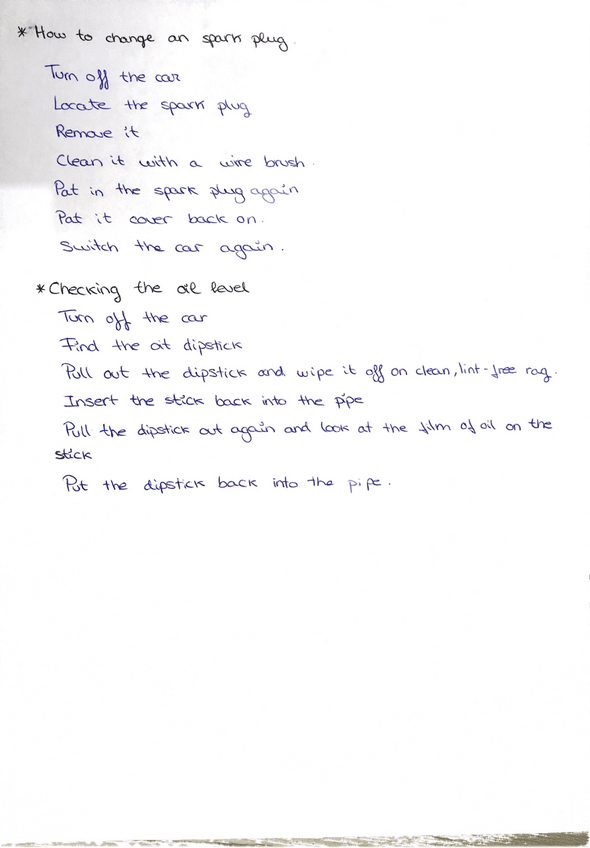 * How to change an spark plug.
Turn off the car
Locate the spark plug
Remove it
Clean it with a wire brush.
Pat in the spark plug again
Pat it cover back on.
Switch the car again.
* Checking the oil level
Turn off the car
Find the oit dipstick
Pull out the dipstick and wipe it off on clean, lint-free rag.
Insert the stick back into the pipe
Pull the dipstick out again and look at the film of oil on the
stick
Put the dipstick back into the pipe.